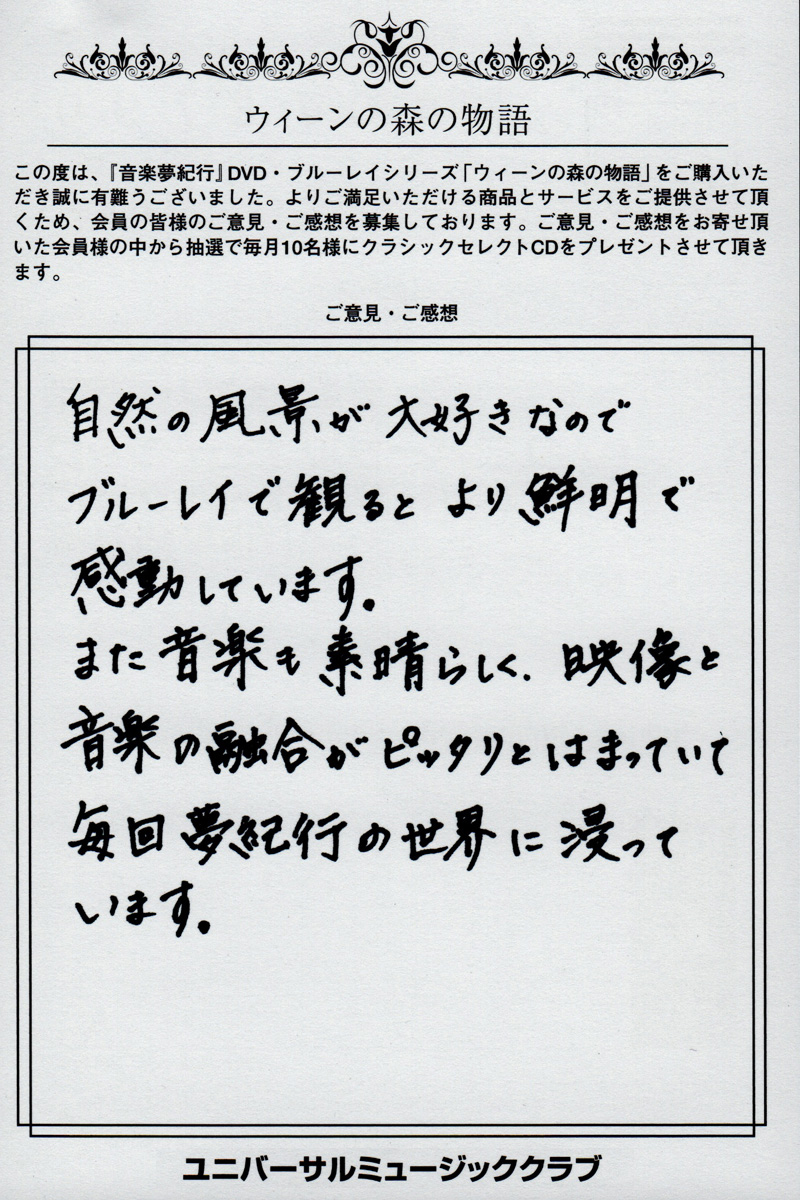 ウィーンの森の物語
この度は、『音楽夢紀行』DVD・ブルーレイシリーズ「ウィーンの森の物語」をご購入いた
だき誠に有難うございました。よりご満足いただける商品とサービスをご提供させて頂
くため、会員の皆様のご意見・ご感想を募集しております。ご意見・ご感想をお寄せ頂
いた会員様の中から抽選で毎月10名様にクラシックセレクトCDをプレゼントさせて頂き
ます。
ご意見・ご感想
自然の風景が大好きなので
ブルーレイで観ると より鮮明で
感動しています。
また音楽も素晴らしく、映像と
音楽の融合がピッタリとはまっていて
毎回夢紀行の世界に浸って
います。
ユニバーサルミュージッククラブ